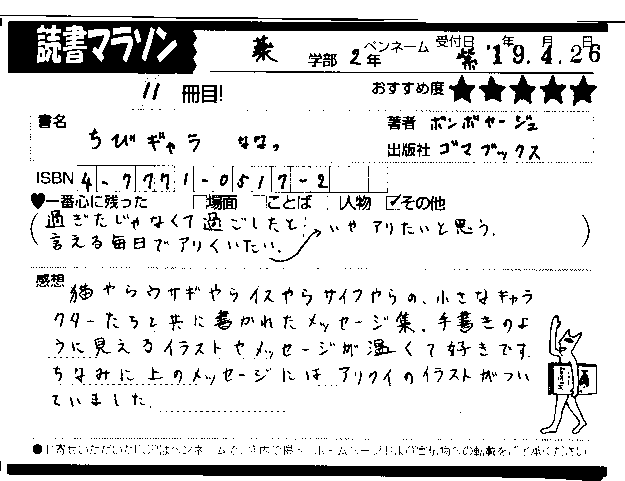 読書マラソン
薬 学部 2年 ペンネーム 紫 受付日 '19年 4月 26日
11 冊目! おすすめ度 ★★★★★
書名 ちびギャラ ななっ
著者 ボンボヤージュ
出版社 ゴマブックス
ISBN 4-7771-0517-2
♥一番心に残った □場面 □ことば □人物 ☑その他
(過ぎたじゃなくて過ごしたと いやアリたいと思う.
言える毎日でアリくいたい. )
感想 猫やらウサギやらイスやらサイフやらの、小さなキャラ
クターたちと共に書かれたメッセージ集。手書きのよ
うに見えるイラストやメッセージが温くて好きです.
ちなみに上のメッセージにはアリクイのイラストがつい
ていました.